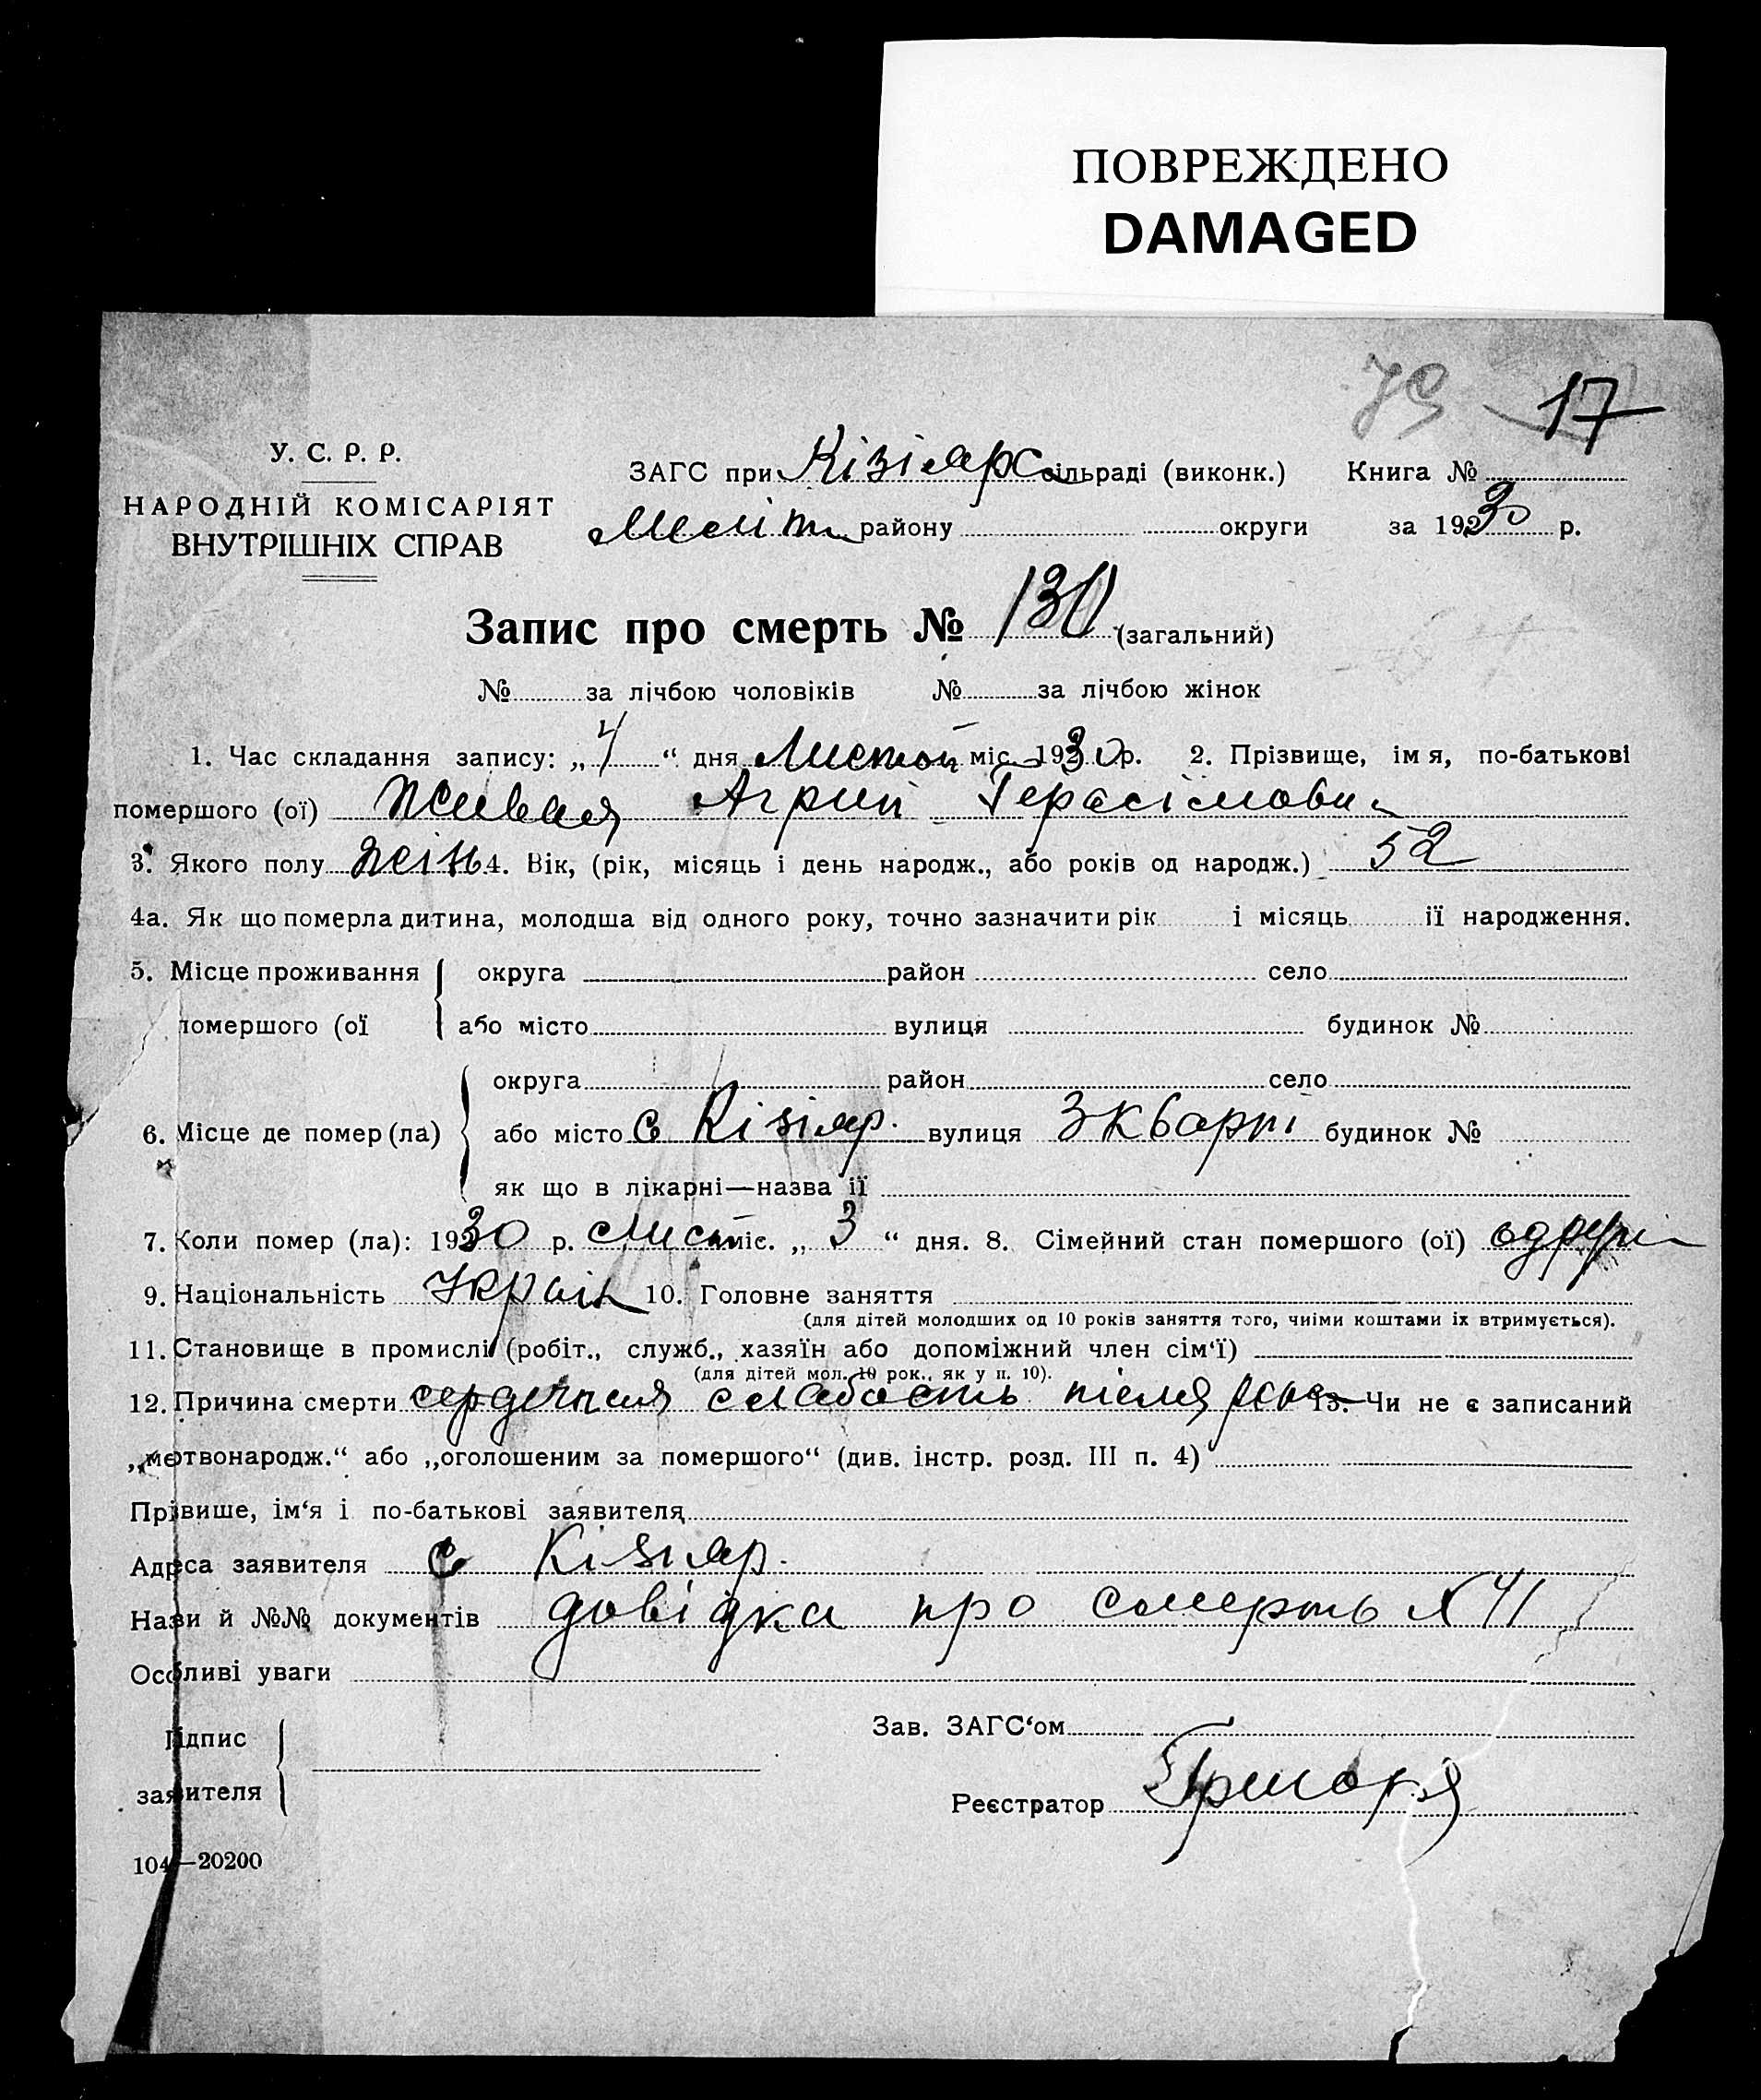 ПОВРЕЖДЕНО
DAMAGED
79 17
У. С. Р. Р.
НАРОДНІЙ КОМІСАРІЯТ
ВНУТРІШНІХ СПРАВ
ЗАГС при Кізіярс сільраді (виконк.) Книга №
Меліт району округи за 1930 р.
Запис про смерть № 130 (загальний)
№ за лічбою чоловіків № за лічбою жінок
1. Час складання запису: „4“ дня Листоп міс. 1930 р. 2. Прізвище, імя, по-батькові
помершого (ої) Герасімовн
3. Якого полу жін 4. Вік, (рік, місяць і день народж., або років од народж.) 52
4а. Як що померла дитина, молодша від одного року, точно зазначити рік і місяць її народження.
5. Місце проживання округа район село
помершого (ої або місто вулиця будинок №
округа район село
6. Місце де помер(ла) або місто с Кізіяр. вулиця 3 кварт будинок №
як що в лікарні—назва її
7. Коли помер (ла): 1930 р. Лист міс. „3“ дня. 8. Сімейний стан помершого (ої) одруж
9. Національність Україн 10. Головне заняття
(для дітей молодших од 10 років заняття того, чиїми коштами їх втримується).
11. Становище в промислі (робіт., служб., хазяїн або допоміжний член сім‘ї)
(для дітей мол. 10 рок., як у п. 10).
12. Причина смерти сердечная слабость після 13. Чи не є записаний
„мертвонародж.“ або „оголошеним за помершого“ (див. інстр. розд. III п. 4)
Прівише, ім‘я і по-батькові заявителя
Адреса заявителя с Кізіяр.
Назви й №№ документів довідка про смерть № 41
Особливі уваги
Підпис
заявителя
Зав. ЗАГС‘ом
Реєстратор
104—20200